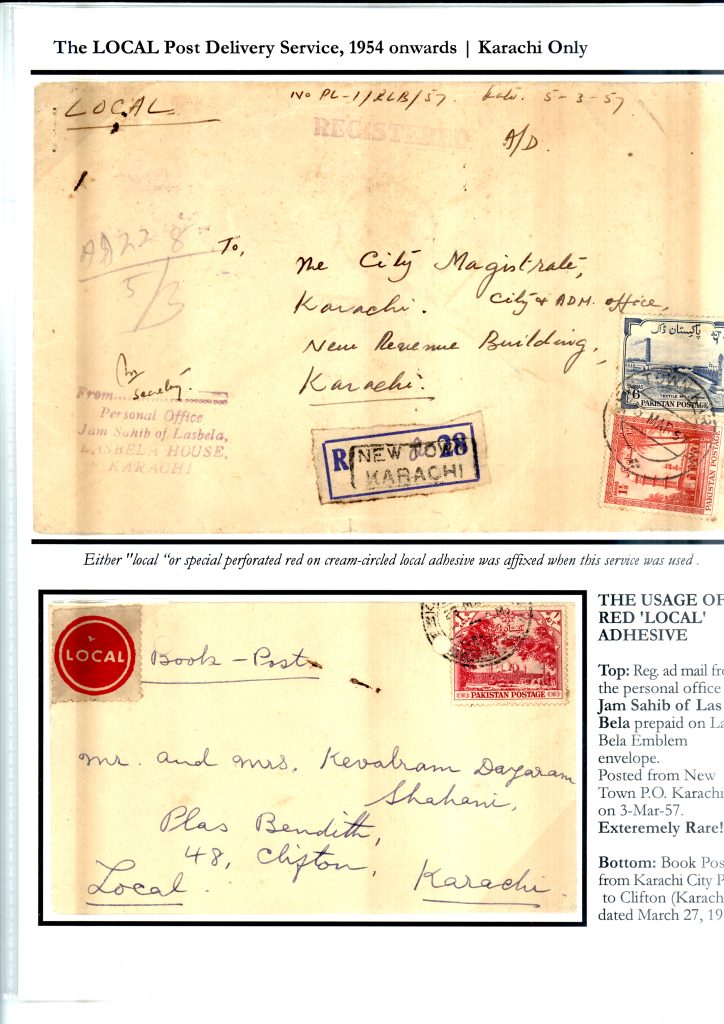 The LOCAL Post Delivery Service, 1954 onwards | Karachi Only
LOCAL
No PL-1/RLB/57. Date. 5-3-57
REGISTERED
A/D.
5/3
To,
The City Magistrate,
Karachi. City & ADM. office,
New Revenue Building,
Karachi.
Secretary.
From
Personal Office
Jam Sahib of Lasbela,
LASBELA HOUSE,
KARACHI
R 28
NEW TOWN
KARACHI
پاکستان ڈاک
6
TEXTILE
PAKISTAN POSTAGE
MAR 57
1½
PAKISTAN POSTAGE
Either "local “or special perforated red on cream-circled local adhesive was affixed when this service was used .
LOCAL
Book – Post
PAKISTAN POSTAGE
Mr. and Mrs. Kevalram Dayaram
Shahani,
Plas Bendith,
48, Clifton,
Local. Karachi.
THE USAGE OF
RED 'LOCAL'
ADHESIVE
Top: Reg. ad mail fro
the personal office
Jam Sahib of Las
Bela prepaid on La
Bela Emblem
envelope.
Posted from New
Town P.O. Karachi
on 3-Mar-57.
Exteremely Rare!
Bottom: Book Pos
from Karachi City P
to Clifton (Karach
dated March 27, 19